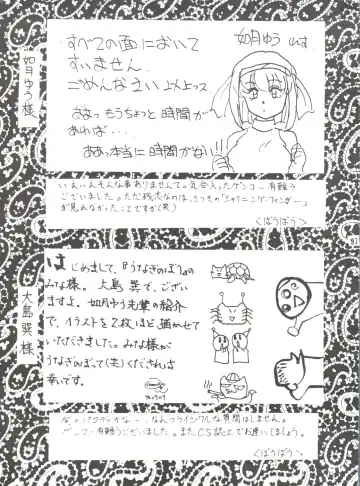 如月ゆう様
すべての面において
すいません
ごめんなさい
ああっ もうちょっと時間が
あれば‥‥
ああっ本当に時間がない
如月ゆう
いえいえそんな事ありませんて。気合入ったゲンコー有難う
ございました。ただ残念なのは、さっきの「シャイニングフィンガー」
が見れなかったことですが(笑)
くぼうぼう>
大島巽様
はじめまして、『うなぎのぼり』の
みな様。大島巽で、ござい
ますよ。如月ゆう先輩の紹介
で、イラストを2枚ほど描かせて
いただきました。みな様が
うなぎのぼって(笑)くだされば
幸いです。
なんつうイジワルな質問はしません。
有難うございました。またCS誌上でお逢いしましょう。
くぼうぼう>